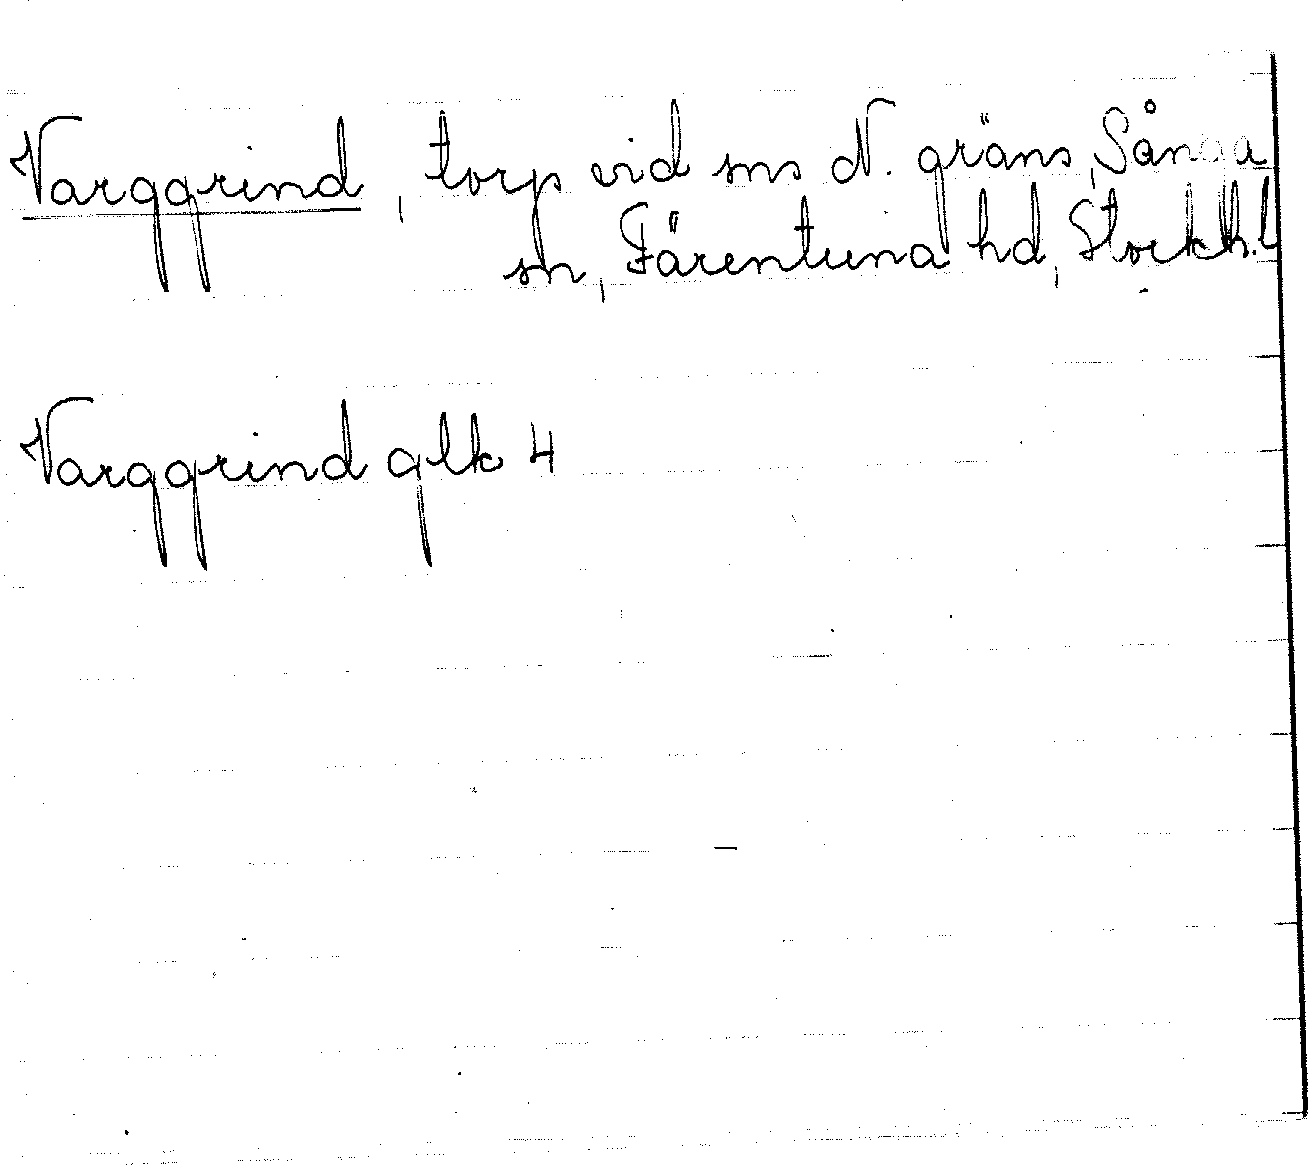 Varggrind, torp vid sns N. gräns, Sånga
sn, Färentuna hd, Stockh. l
Varggrind glk 4